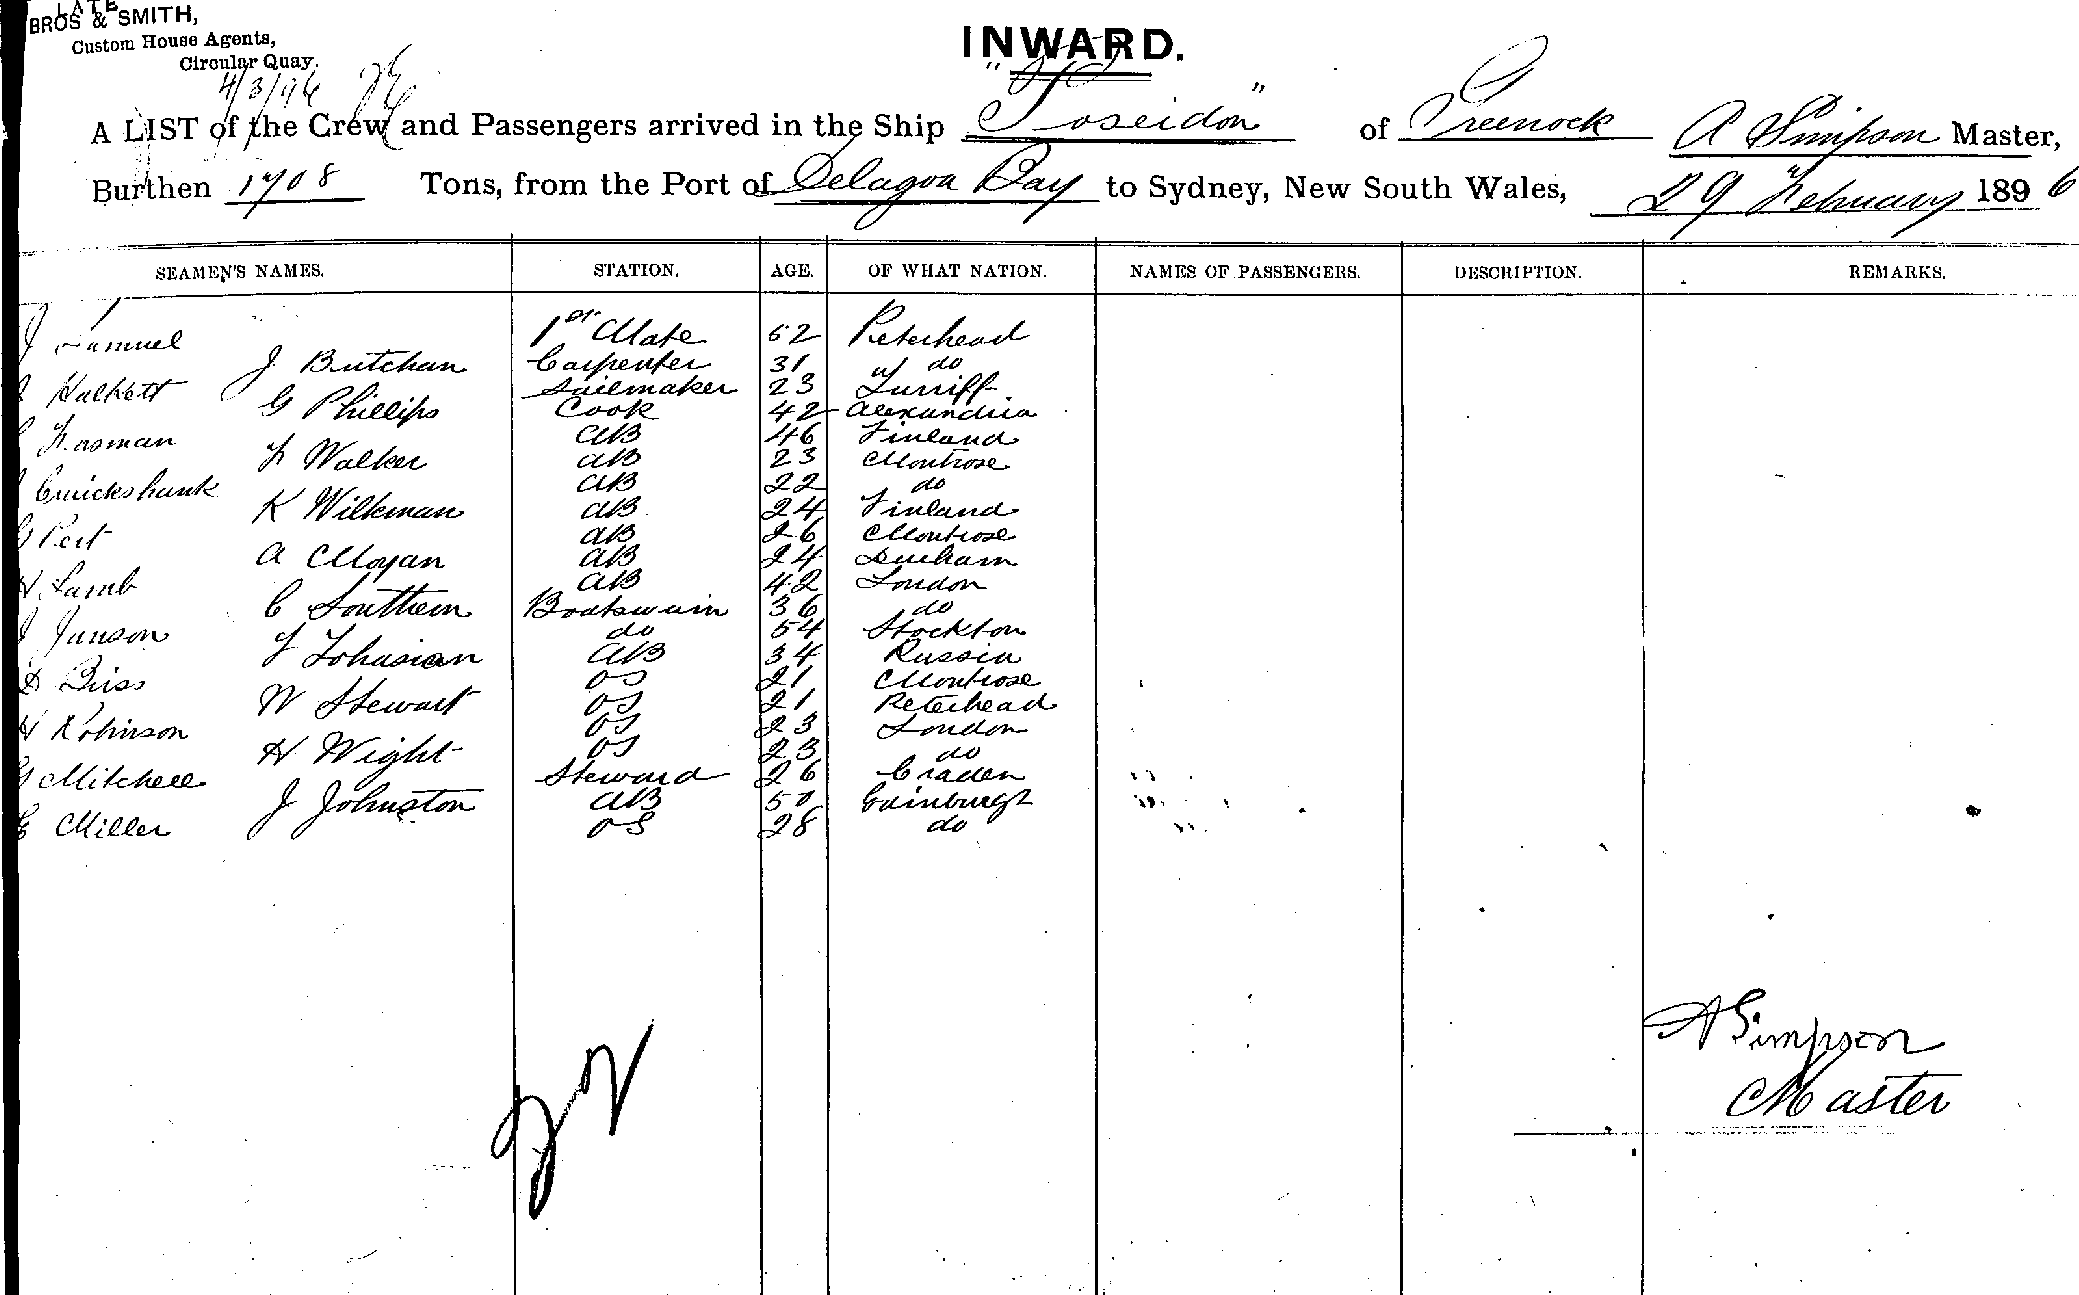 LATE
BROS & SMITH,
Custom House Agents,
Circular Quay.
4/3/96
INWARD.
A LIST of the Crew and Passengers arrived in the Ship "Poseidon" of Greenock A Simpson Master,
Burthen 1708 Tons, from the Port of Delagoa Bay to Sydney, New South Wales, 29 February 1896
SEAMEN'S NAMES. STATION. AGE. OF WHAT NATION. NAMES OF PASSENGERS. DESCRIPTION. REMARKS.
J Samuel 1st Mate 52 Peterhead
J Butchan Carpenter 31 do
J Halkett Sailmaker 23 Turriff
G Phillips Cook 42 Alexandria
Kasman AB 46 Finland
F Walker AB 23 Montrose
Cruickshank AB 22 do
K Wilkman AB 24 Finland
G Pert AB 26 Montrose
A Moyan AB 24 Durham
H Lamb AB 42 London
C Southern Boatswain 36 do
J Janson do 54 Stockton
AB 34 Russia
D Biss OS 21 Montrose
W Stewart OS 21 Peterhead
H Robinson OS 23 London
H Wight OS 23 do
G Mitchell Steward 26 Craden
J Johnston AB 50 Edinburgh
G Miller OS 28 do
A Simpson
Master